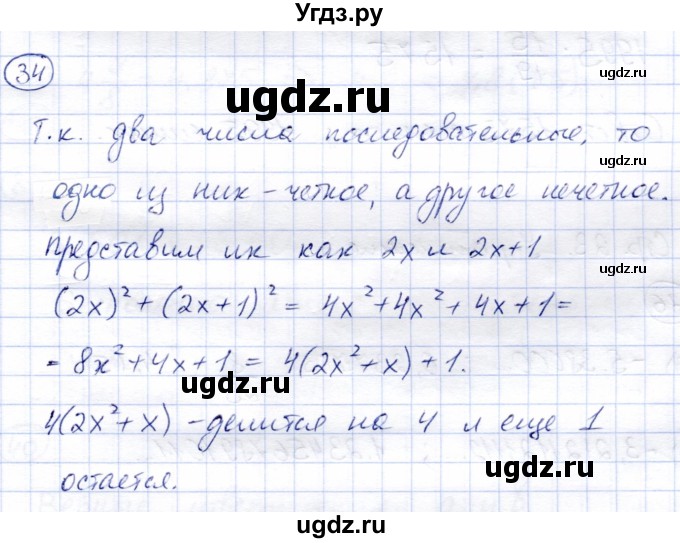 Угдз.ру
34
ugdz.ru
Т.к. два числа последовательные, то
одно из них - четное, а другое нечетное.
Представим их как 2x и 2x+1
(2x)² + (2x+1)² = 4x² + 4x² + 4x + 1 =
= 8x² + 4x + 1 = 4(2x² + x) + 1.
ugdz.ru
4(2x² + x) - делится на 4 и еще 1
остается.
ugdz.ru
ugdz.ru